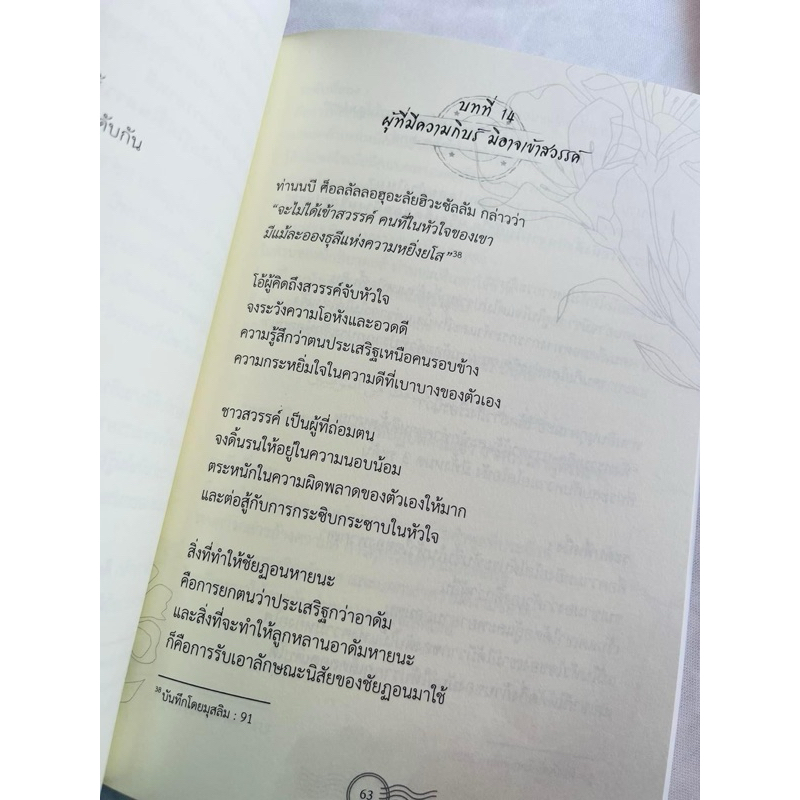 ดับกัน
บทที่ 14
ผู้ที่มีความกิบร์ มิอาจเข้าสวรรค์
ท่านนบี ศ็อลลัลลอฮุอะลัยฮิวะซัลลัม กล่าวว่า
“จะไม่ได้เข้าสวรรค์ คนที่ในหัวใจของเขา
มีแม้ละอองธุลีแห่งความหยิ่งยโส”³⁸
โอ้ผู้คิดถึงสวรรค์จับหัวใจ
จงระวังความโอหังและอวดดี
ความรู้สึกว่าตนประเสริฐเหนือคนรอบข้าง
ความกระหยิ่มใจในความดีที่เบาบางของตัวเอง
ชาวสวรรค์ เป็นผู้ที่ถ่อมตน
จงดิ้นรนให้อยู่ในความนอบน้อม
ตระหนักในความผิดพลาดของตัวเองให้มาก
และต่อสู้กับการกระซิบกระซาบในหัวใจ
สิ่งที่ทำให้ชัยฏอนหายนะ
คือการยกตนว่าประเสริฐกว่าอาดัม
และสิ่งที่จะทำให้ลูกหลานอาดัมหายนะ
ก็คือการรับเอาลักษณะนิสัยของชัยฏอนมาใช้
³⁸ บันทึกโดยมุสลิม : 91
63